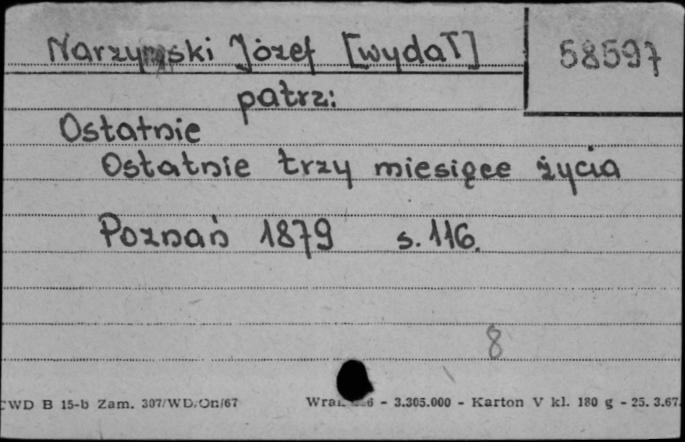 Narzymski Józef [wydał]
58597
patrz:
Ostatnie
Ostatnie trzy miesiące życia
Poznań 1879 s. 116.
8
CWD B 15-b Zam. 307/WD/On/67
- 3.305.000 - Karton V kl. 180 g - 25. 3.67.